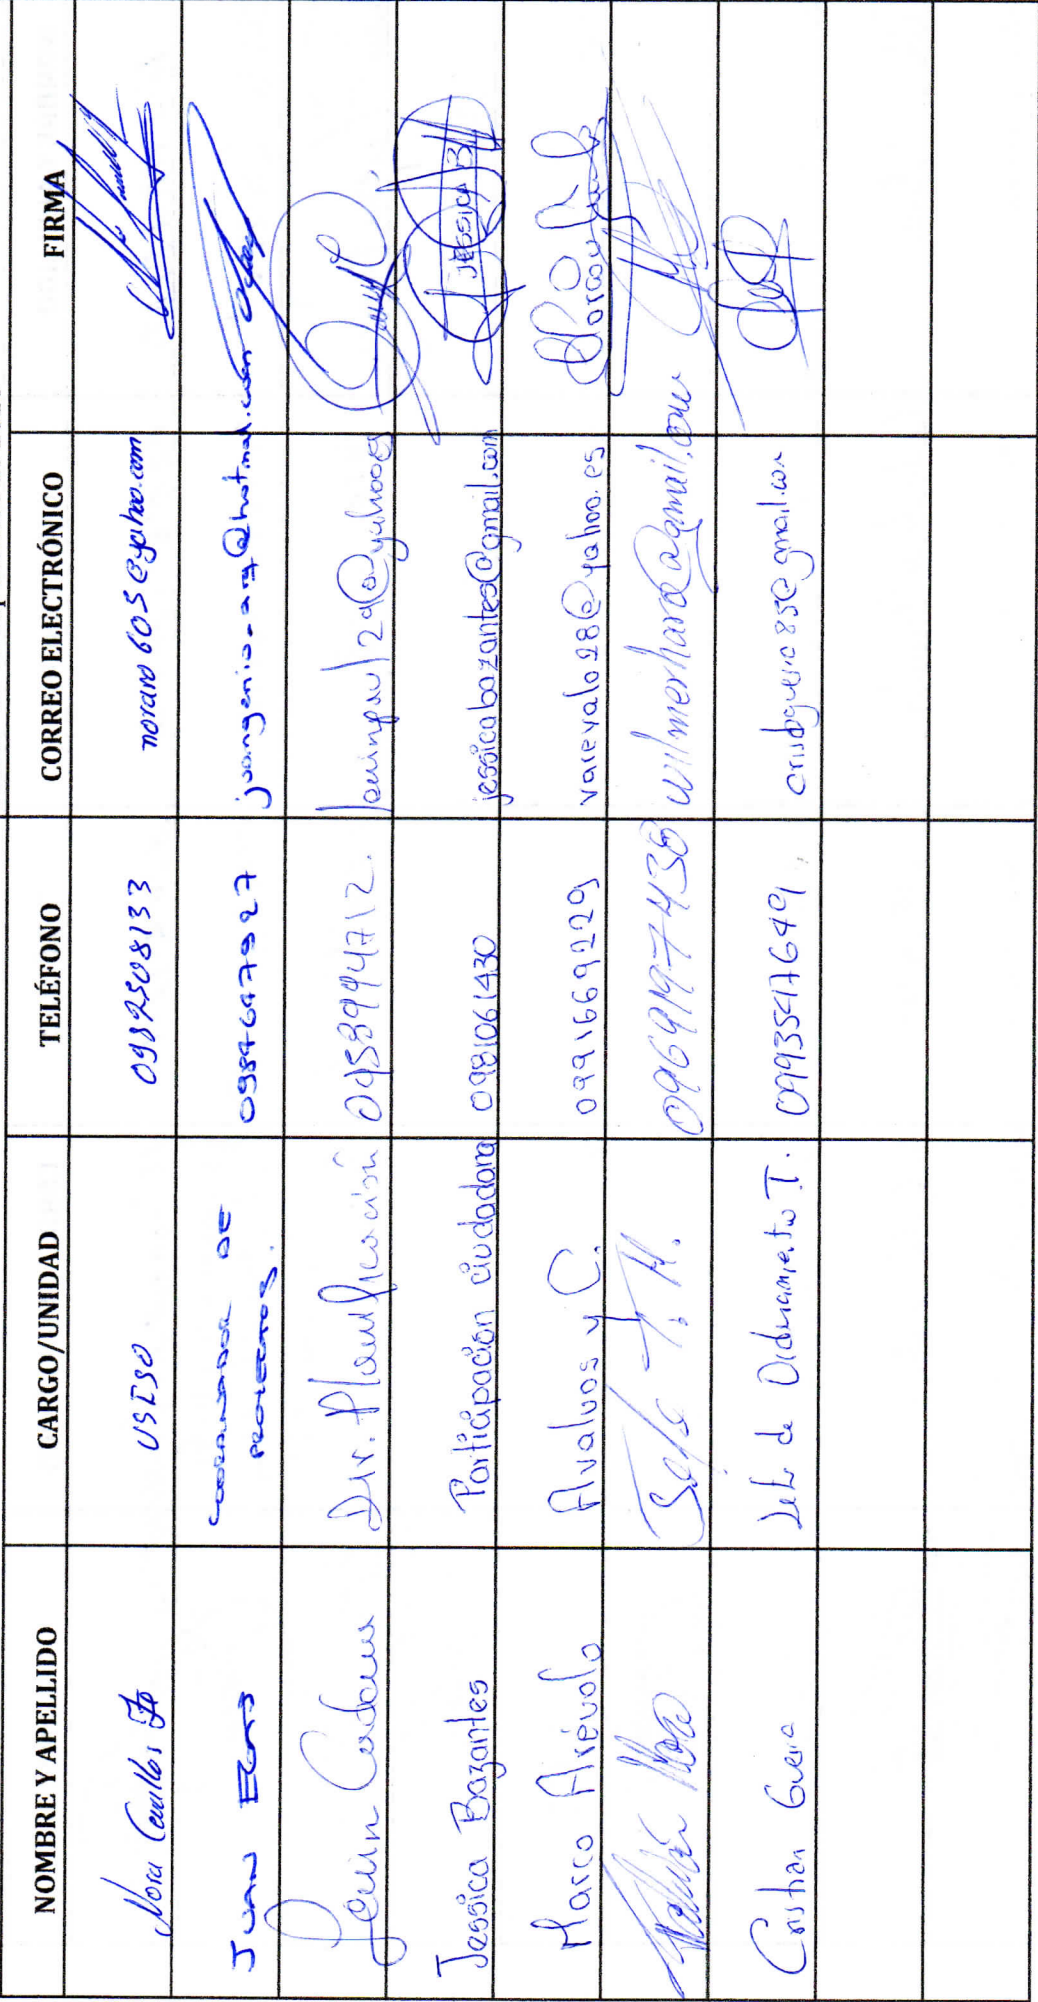 NOMBRE Y APELLIDO CARGO/UNIDAD TELÉFONO CORREO ELECTRÓNICO FIRMA
Nora 0982508133 norano605@yahoo.com
JUAN COORDINADOR DE PROYECTOS. 0984647827 juangenio-arq@hotmail.com
Lenin Cadena Dir. Planificación 0458994712.
Jessica Bazantes Participación ciudadana 0981061430 jessicabazantes@gmail.com JESSICA B
Marco Arévalo Avaluos y C. 0991669229 varevalo28@yahoo.es
Jefe T.H. 0969197436 wilmerharo@gmail.com
Cristian Guerra Jefe de Ordenamiento T. 0993547649